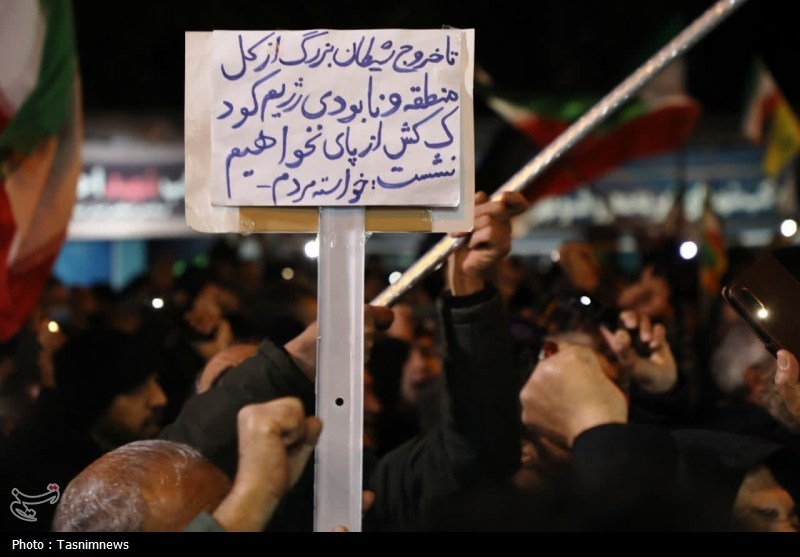 تا خروج شیطان بزرگ از کل
منطقه و نابودی رژیم کود
ک کش از پای نخواهیم
نشست؛ خواسته مردم -
تسنیم
Photo : Tasnimnews